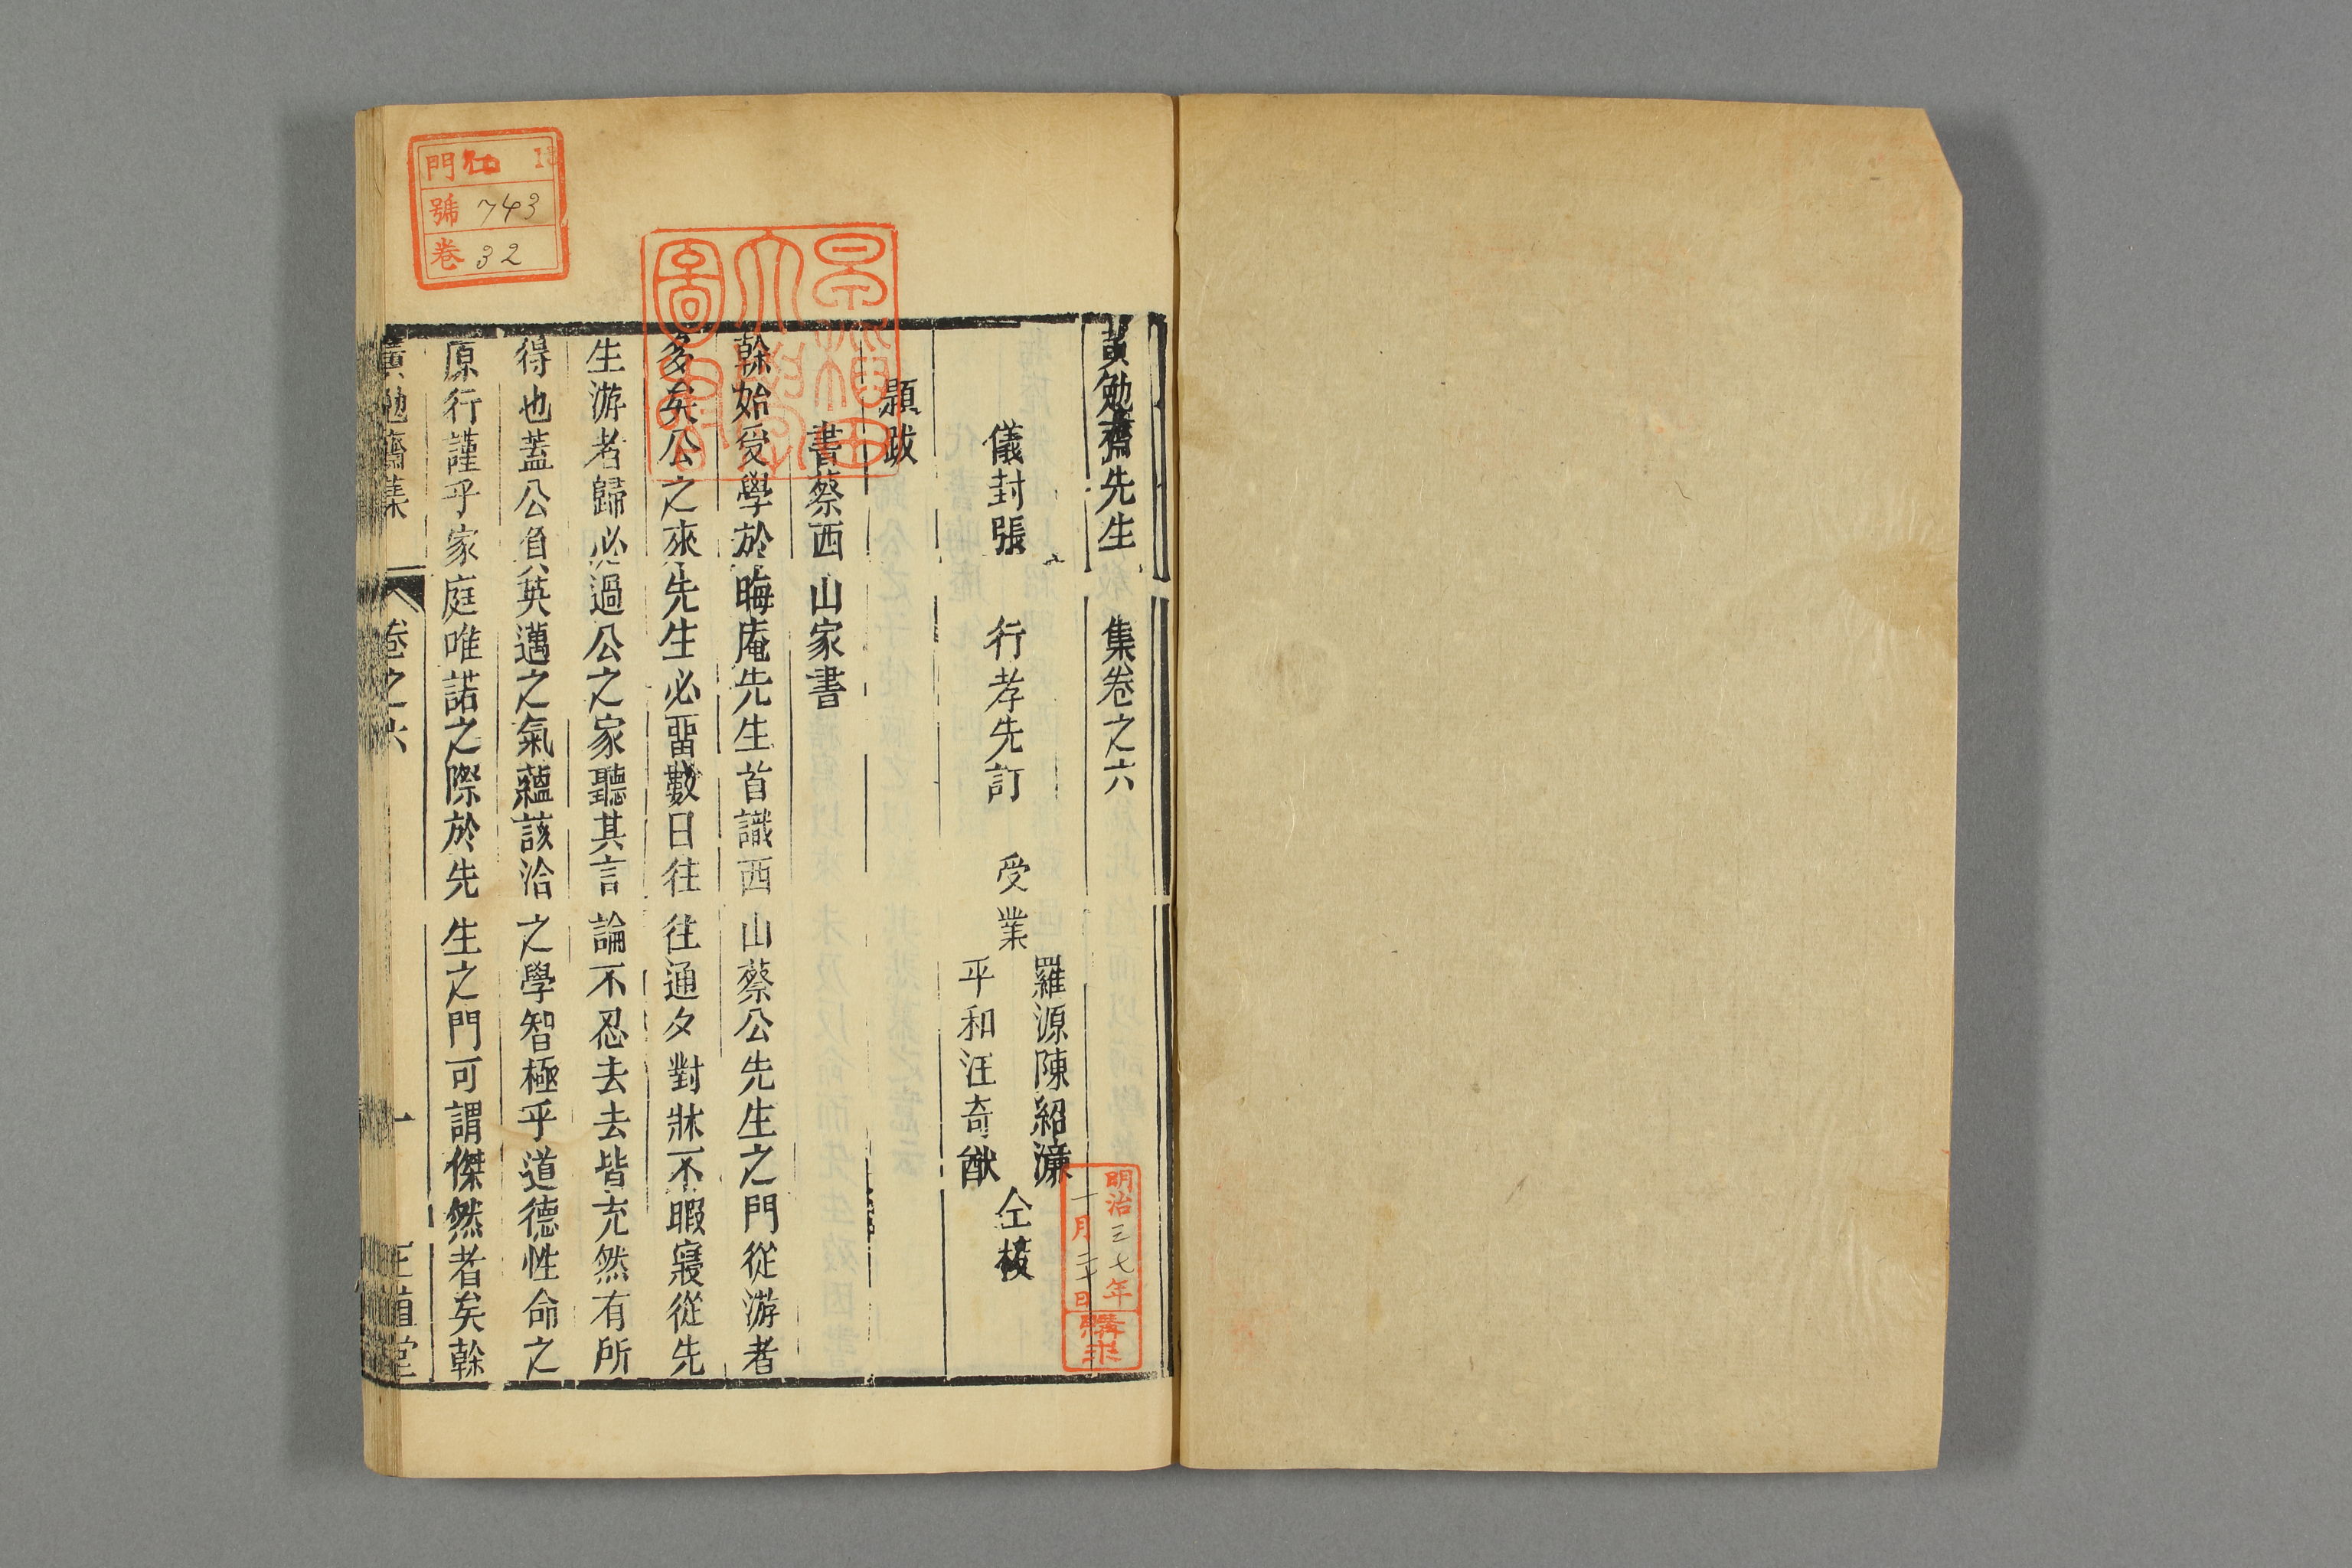 黃勉齋先生集卷之六
儀封張　行孝先訂　受業　羅源陳紹濂
平和汪奇猷　仝校
題跋
書蔡西山家書
榦始受學於晦庵先生首識西山蔡公先生之門從游者
多矣公之來先生必畱數日往往通夕對牀不暇寢從先
生游者歸必過公之家聽其言論不忍去去皆充然有所
得也蓋公負英邁之氣蘊該洽之學智極乎道德性命之
原行謹乎家庭唯諾之際於先生之門可謂傑然者矣榦
黃勉齋集　卷之六　一　正誼堂
門 仁
號 743
卷 32
早稲田大學圖書
明治三七年
一月二十日
購求